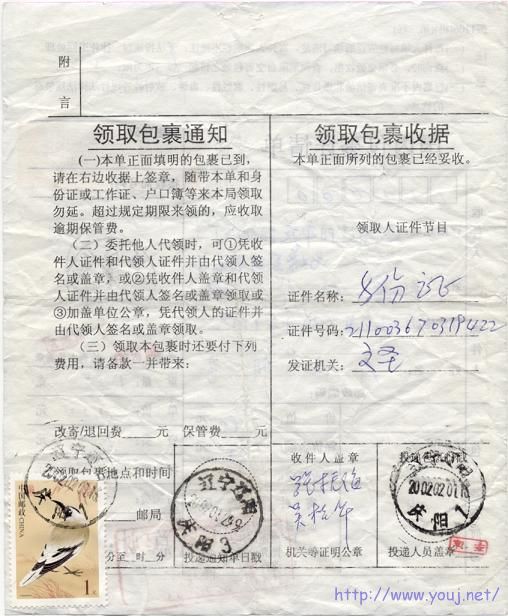 附
言
领取包裹通知
(一)本单正面填明的包裹已到,
请在右边收据上签章，随带本单和身
份证或工作证、户口簿等来本局领取
勿延。超过规定期限来领的，应收取
逾期保管费。
(二)委托他人代领时，可①凭收
件人证件和代领人证件并由代领人签
名或盖章，或②凭收件人盖章和代领
人证件并由代领人签名或盖章领取或
③加盖单位公章，凭代领人的证件并
由代领人签名或盖章领取。
(三)领取本包裹时还要付下列
费用，请备款一并带来:
改寄/退回费____元 保管费____元
领取包裹地点和时间
邮局
分至__时__分
投递通知单日戳
领取包裹收据
本单正面所列的包裹已经妥收。
领取人证件节目
证件名称: 身份证
证件号码: 211003670319422
发证机关: 文圣
收件人盖章
机关等证明公章
投递人员盖章
辽宁
2002.02.01.18
庆阳
辽宁辽阳
庆阳 3
2002.02.01.18
庆阳 1
中国邮政 CHINA
1元
http://www.youj.net/